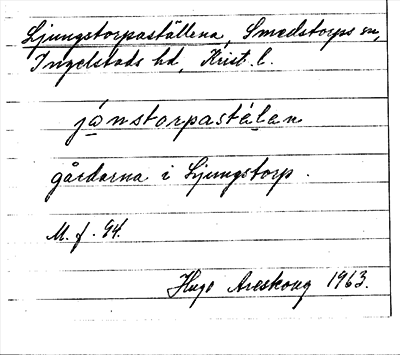 Ljungstorpaställena, Smedstorps sn,
Ingelstads hd, Krist. l.
jånstorpastélan
gårdarna i Ljungstorp.
M. f. 94.
Hugo Areskoug 1963.